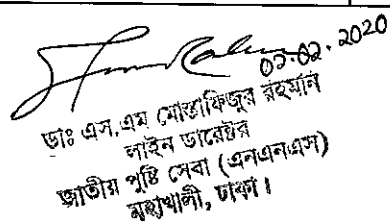 02.02.2020
ডাঃ এস,এম মোস্তাফিজুর রহমান
লাইন ডারেক্টর
জাতীয় পুষ্টি সেবা (এনএনএস)
মহাখালী, ঢাকা।